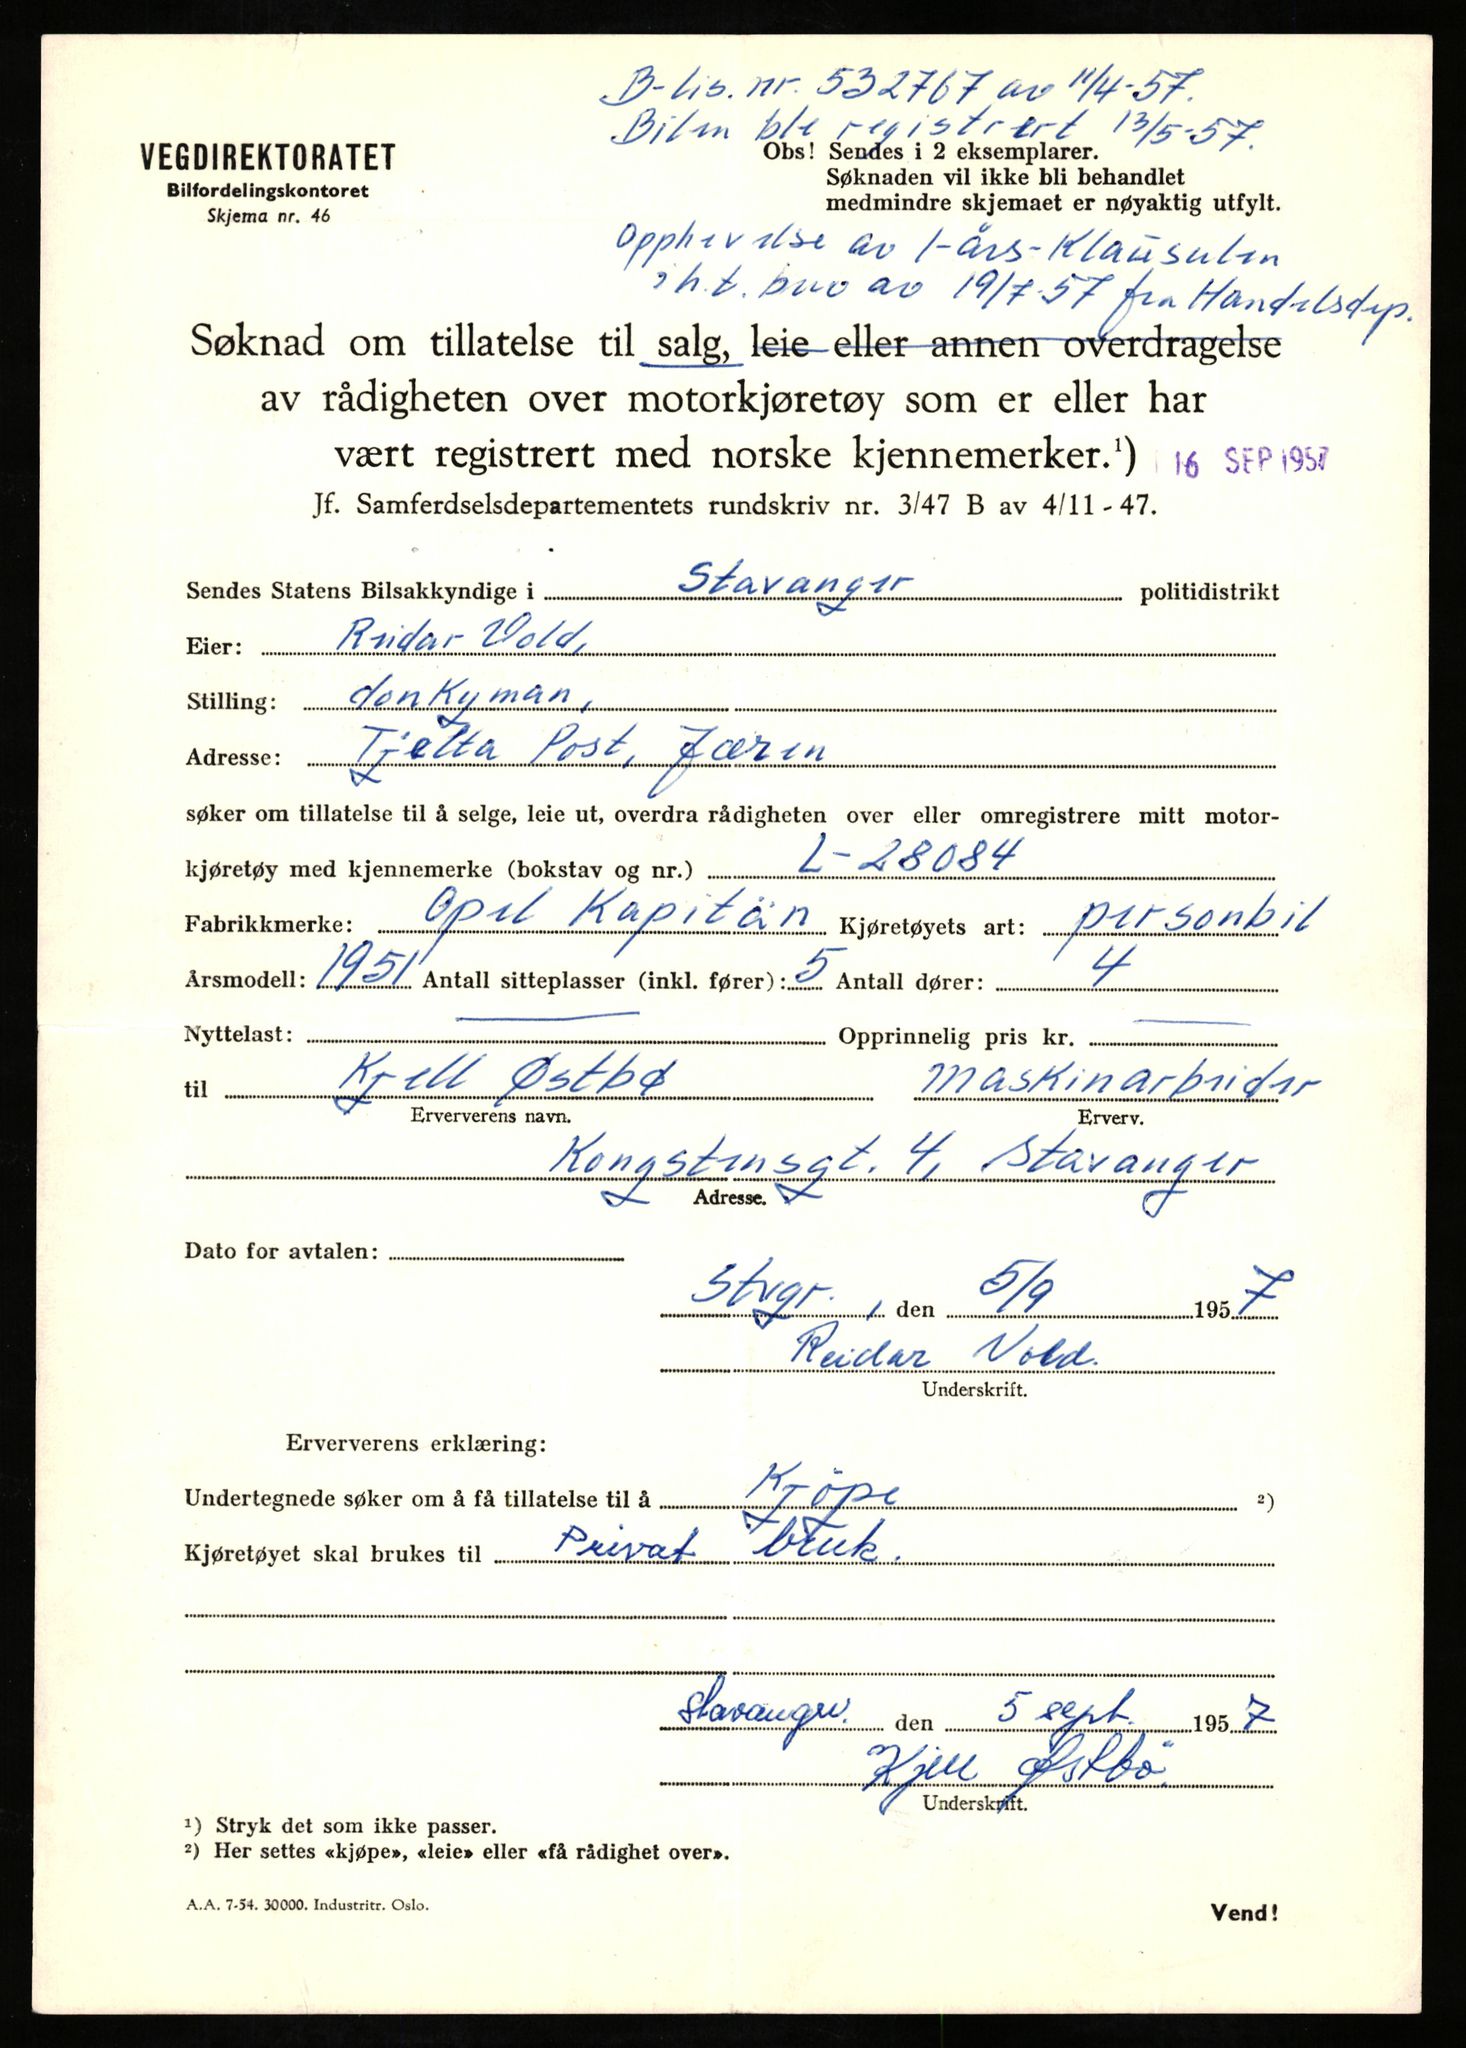 B-lis. nr. 532767 av 11/4-57.
Bilen ble registrert 13/5-57.
VEGDIREKTORATET
Bilfordelingskontoret
Skjema nr. 46
Obs! Sendes i 2 eksemplarer.
Søknaden vil ikke bli behandlet
medmindre skjemaet er nøyaktig utfylt.
Opphevelse av 1-års-Klausulen
i h.t. brev av 19/7-57 fra Handelsdep.
Søknad om tillatelse til salg, leie eller annen overdragelse
av rådigheten over motorkjøretøy som er eller har
vært registrert med norske kjennemerker.¹)
16 SEP 1957
Jf. Samferdselsdepartementets rundskriv nr. 3/47 B av 4/11 - 47.
Sendes Statens Bilsakkyndige i Stavanger politidistrikt
Eier: Reidar Vold,
Stilling: donkyman,
Adresse: Tjelta Post, Jæren
søker om tillatelse til å selge, leie ut, overdra rådigheten over eller omregistrere mitt motor-
kjøretøy med kjennemerke (bokstav og nr.) L-28084
Fabrikkmerke: Opel Kapitän Kjøretøyets art: personbil
Årsmodell: 1951 Antall sitteplasser (inkl. fører): 5 Antall dører: 4
Nyttelast: Opprinnelig pris kr.
til Kjell Østbø maskinarbeider
Erververens navn. Erverv.
Kongstensgt. 4, Stavanger
Adresse.
Dato for avtalen:
Stvgr., den 5/9 1957
Reidar Vold.
Underskrift.
Erververens erklæring:
Undertegnede søker om å få tillatelse til å Kjöpe ²)
Kjøretøyet skal brukes til Privat bruk.
Stavanger. den 5 sept. 1957
Kjell Østbö.
Underskrift.
¹) Stryk det som ikke passer.
²) Her settes «kjøpe», «leie» eller «få rådighet over».
A.A. 7-54. 30000. Industritr. Oslo.
Vend!